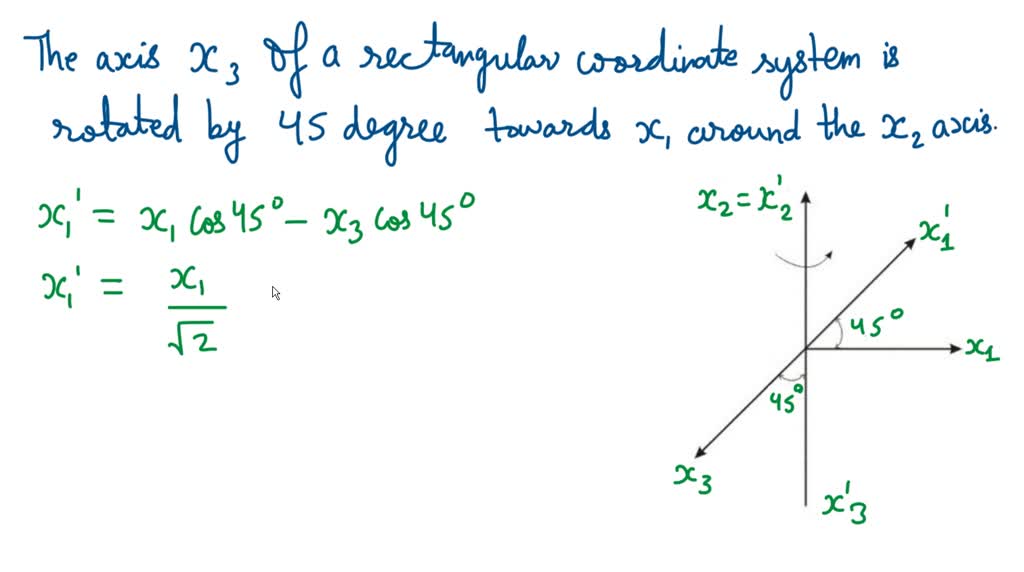 The axis x₃ of a rectangular coordinate system is
rotated by 45 degree towards x₁ around the x₂ axis.
x₁' = x₁ cos 45° - x₃ cos 45°
x₁' = x₁ / √2
x₂ = x₂'
x₁'
45°
x₁
45°
x₃
x'₃